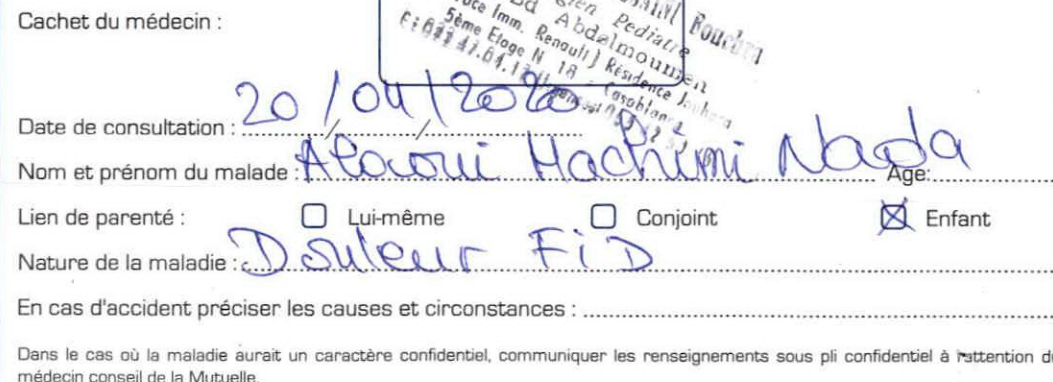 Cachet du médecin :
Pediatre
Bd Abdelmoumen
Imm. Renault) Résidence
5ème Etage N 18 - Casablanca
Date de consultation : 20/04/2020
Nom et prénom du malade : Alaoui Hachimi Nada Age:
Lien de parenté : Lui-même Conjoint Enfant
Nature de la maladie : Douleur FiD
En cas d'accident préciser les causes et circonstances :
Dans le cas où la maladie aurait un caractère confidentiel, communiquer les renseignements sous pli confidentiel à l'attention du
médecin conseil de la Mutuelle.